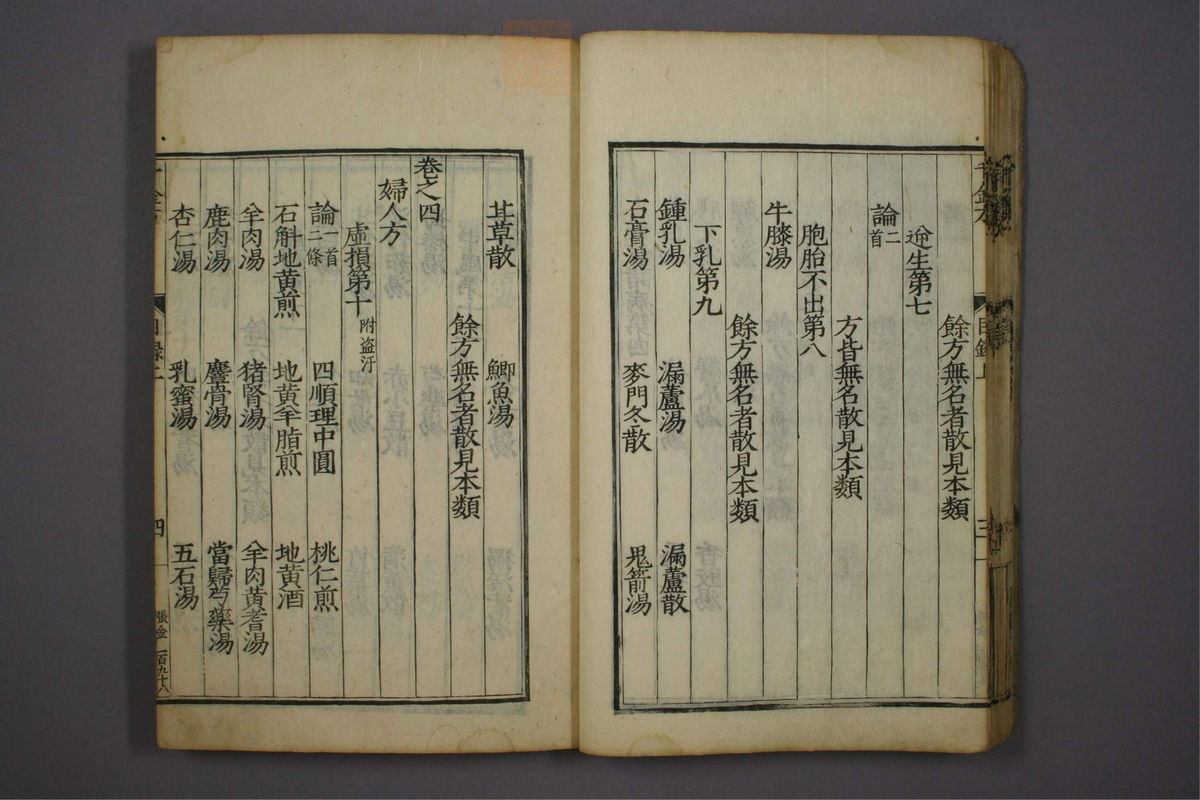 餘方無名者散見本類
逆生第七
論二首
方皆無名散見本類
胞胎不出第八
牛膝湯
餘方無名者散見本類
下乳第九
鍾乳湯 漏蘆湯 漏蘆散
石膏湯 麥門冬散 鬼箭湯
甘草散 鯽魚湯
餘方無名者散見本類
卷之四
婦人方
虛損第十 附盜汗
論一首二條 四順理中圓 桃仁煎
石斛地黄煎 地黄羊脂煎 地黄酒
羊肉湯 猪腎湯 羊肉黄耆湯
鹿肉湯 麞骨湯 當歸芍藥湯
杏仁湯 乳蜜湯 五石湯
四
張金 一百九十八